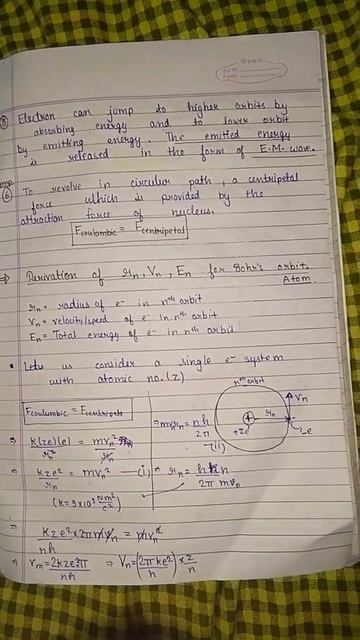 Date
Page
⑤ Electron can jump to higher orbits by
absorbing energy and to lower orbit
by emitting energy. The emitted energy
is released in the form of E.M. wave.
⑥ To revolve in circular path, a centripetal
force which is provided by the
attraction force of nucleus.
Fcoulombic = Fcentripetal
⇒ Derivation of rn, Vn, En for Bohr's orbit.
Atom
rn = radius of e⁻ in nth orbit
Vn = velocity/speed of e⁻ in nth orbit
En = Total energy of e⁻ in nth orbit
• Lets us consider a single e⁻ system
with atomic no. (z)
nth orbit
Vn
rn
+ze
-e
Fcoulombic = Fcentripetal
⇒ mvnrn = nh/2π —(ii)
⇒ k(ze)(e)/rn² = mvn²/rn
⇒ kze²/rn = mvn² —(i)
⇒ rn = hn/2π mvn
(k = 9×10⁹ Nm²/c²)
⇒ kze²×2πmvn/nh = mvn²
⇒ vn = 2kze²π/nh ⇒ Vn = (2πke²/h) × z/n